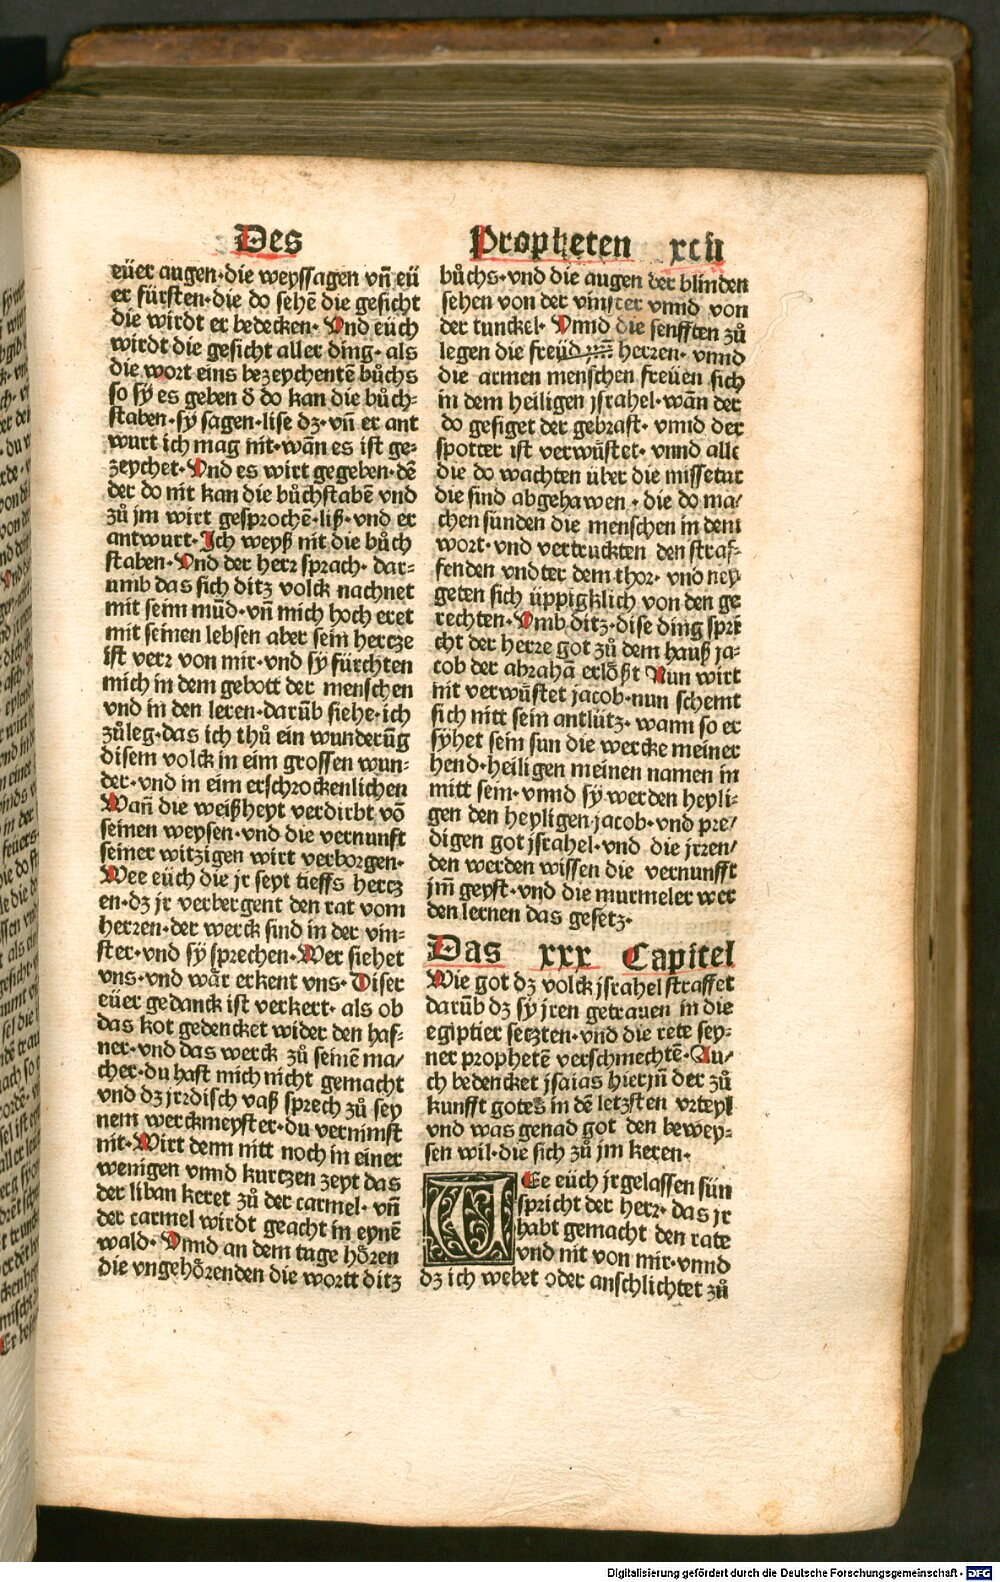 Des
Propheten xcii
eüer augen·die weyssagen vñ eü
er fürsten·die do sehẽ die gesicht
die wirdt er bedecken· Vnd eüch
wirdt die gesicht aller ding· als
die wort eins bezeychentẽ bůchs
so sÿ es geben d̕ do kan die bůch⸗
staben·sÿ sagen·lise dz·vñ er ant
wurt ich mag nit·wãn es ist ge⸗
zeychet· Vnd es wirt gegeben·dẽ
der do nit kan die bůchstabẽ vnd
zů jm wirt gesprochẽ·liß·vnd er
antwurt· Ich weyß nit die bůch
staben· Vnd der herꝛ sprach· dar⸗
umb das sich ditz volck nachnet
mit seim mũd·vñ mich hoch eret
mit seinen lebsen aber sein hertze
ist verꝛ von mir·vnd sÿ fürchten
mich in dem gebott der menschen
vnd in den leren·darũb siehe·ich
zůleg·das ich thů ein wunderũg
disem volck in eim grossen wun⸗
der·vnd in eim erschꝛockenlichen
Wañ die weißheyt verdirbt võ
seinen weysen·vnd die vernunft
seiner witzigen wirt verborgen·
Wee eüch die jr seyt tieffs hertz
en·dz jr verbergent den rat vom
herꝛen·der werck sind in der vin⸗
ster·vnd sÿ sprechen· Wer siehet
vns·vnd wär erkent vns· Diser
eüer gedanck ist verkert· als ob
das kot gedencket wider den haf⸗
ner·vnd das werck zů seinẽ ma/
cher·du hast mich nicht gemacht
vnd dz jrꝛdisch vaß sprech zů sey
nem werckmeyster·du vernimst
nit· Wirt denn nitt noch in einer
wenigen vnnd kurtzen zeyt das
der liban keret zů der carmel· vñ
der carmel wirdt geacht in eynẽ
wald· Vnnd an dem tage hören
die vngehörenden die wortt ditz
bůchs·vnd die augen der blinden
sehen von der vinster vnnd von
der tunckel· Vnnd die senfften zů
legen die freüd herren· vnnd
die armen menschen freüen sich
in dem heiligen jsrahel·wãn der
do gesiget der gebrast· vnnd der
spotter ist verwüstet· vnnd alle
die do wachten über die missetat
die sind abgehawen·die do ma/
chen sünden die menschen in dem
wort·vnd vertruckten den straf⸗
fenden vndter dem thor· vnd ney
geten sich üppigklich von den ge
rechten· Vmb ditz·dise ding spri
cht der herre got zů dem hauß ja⸗
cob der abrahã erlößt Nun wirt
nit verwüstet jacob·nun schemt
sich nitt sein antlütz·wann so er
syhet sein sun die wercke meiner
hend·heiligen meinen namen in
mitt sein·vnnd sÿ werden heyli⸗
gen den heyligen jacob·vnd pre/
digen got jsrahel·vnd die jrren/
den werden wissen die vernunfft
jm̃ geyst·vnd die murmeler wer
den lernen das gesetz·
Das xxx Capitel
Wie got dz volck jsrahel straffet
darũb dz sy jren getrauen in die
egiptier setzten·vnd die rete sey⸗
ner prophetẽ verschmechtẽ· Au/
ch bedencket jsaias hierjñ der zů
kunfft gotes in dẽ letzsten vrteyl
vnd was genad got den bewey⸗
sen wil·die sich zů jm keren·
WEe eüch jr gelassen sün
spricht der herꝛ·das jr
habt gemacht den rate
vnd nit von mir·vnnd
dz ich webet oder anschlichtet zů
Digitalisierung gefördert durch die Deutsche Forschungsgemeinschaft - DFG